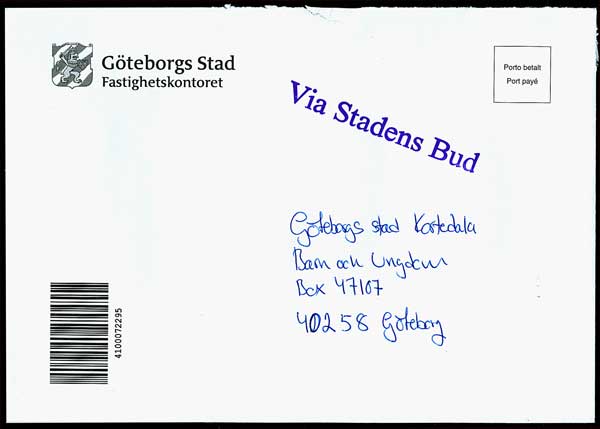 Göteborgs Stad
Fastighetskontoret
Porto betalt
Port payé
Via Stadens Bud
Göteborgs stad Kortedala
Barn och Ungdom
Box 47107
40258 Göteborg
4100072295